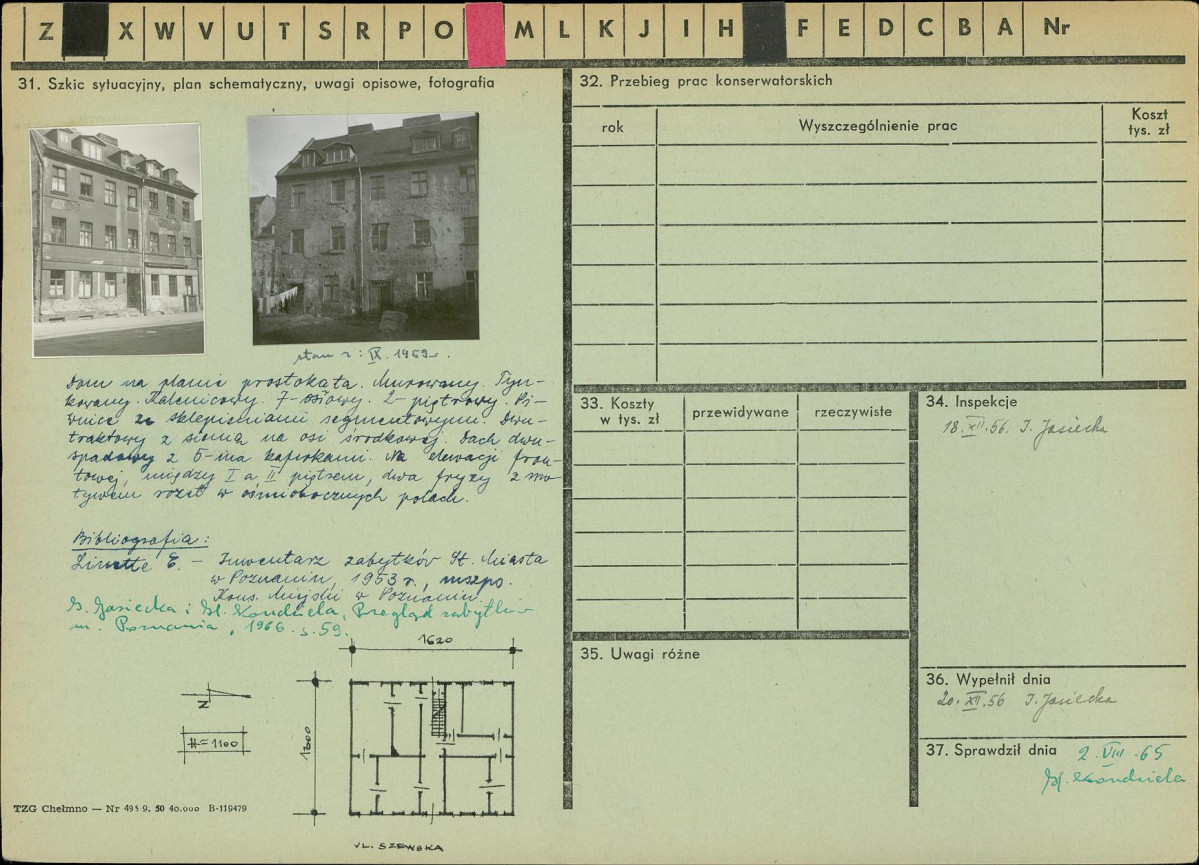 Z X W V U T S R P O M L K J I H F E D C B A Nr
31. Szkic sytuacyjny, plan schematyczny, uwagi opisowe, fotografia
stan z: IX. 1959 r.
Dom na planie prostokąta. Murowany. Tyn-
kowany. Kalenicowy. 7-osiowy. 2-piętrowy. Pi-
wnice ze sklepieniami segmentowymi. Dwu-
traktowy z sienią na osi środkowej. Dach dwu-
spadowy z 5-ma kafrkami. Na elewacji fron-
towej, między I a II piętrem, dwa fryzy z mo-
tywem rozet w ośmiobocznych polach.
Bibliografia:
Linette E. – Inwentarz zabytków St. Miasta
w Poznaniu, 1953 r., mszps.
Kons. Miejski w Poznaniu.
Jasiecka i Kondziela, Przegląd zabytków
m. Poznania, 1966. s. 59.
1620
N
1200
#=1100
UL. SZEWSKA
TZG Chełmno — Nr 495 9. 50 40.000 B-119479
32. Przebieg prac konserwatorskich
rok Wyszczególnienie prac Koszt
tys. zł
33. Koszty
w tys. zł przewidywane rzeczywiste
34. Inspekcje
18. XII. 56. I. Jasiecka
35. Uwagi różne
36. Wypełnił dnia
20. XII. 56 I. Jasiecka
37. Sprawdził dnia 2. VIII. 65
Kondziela